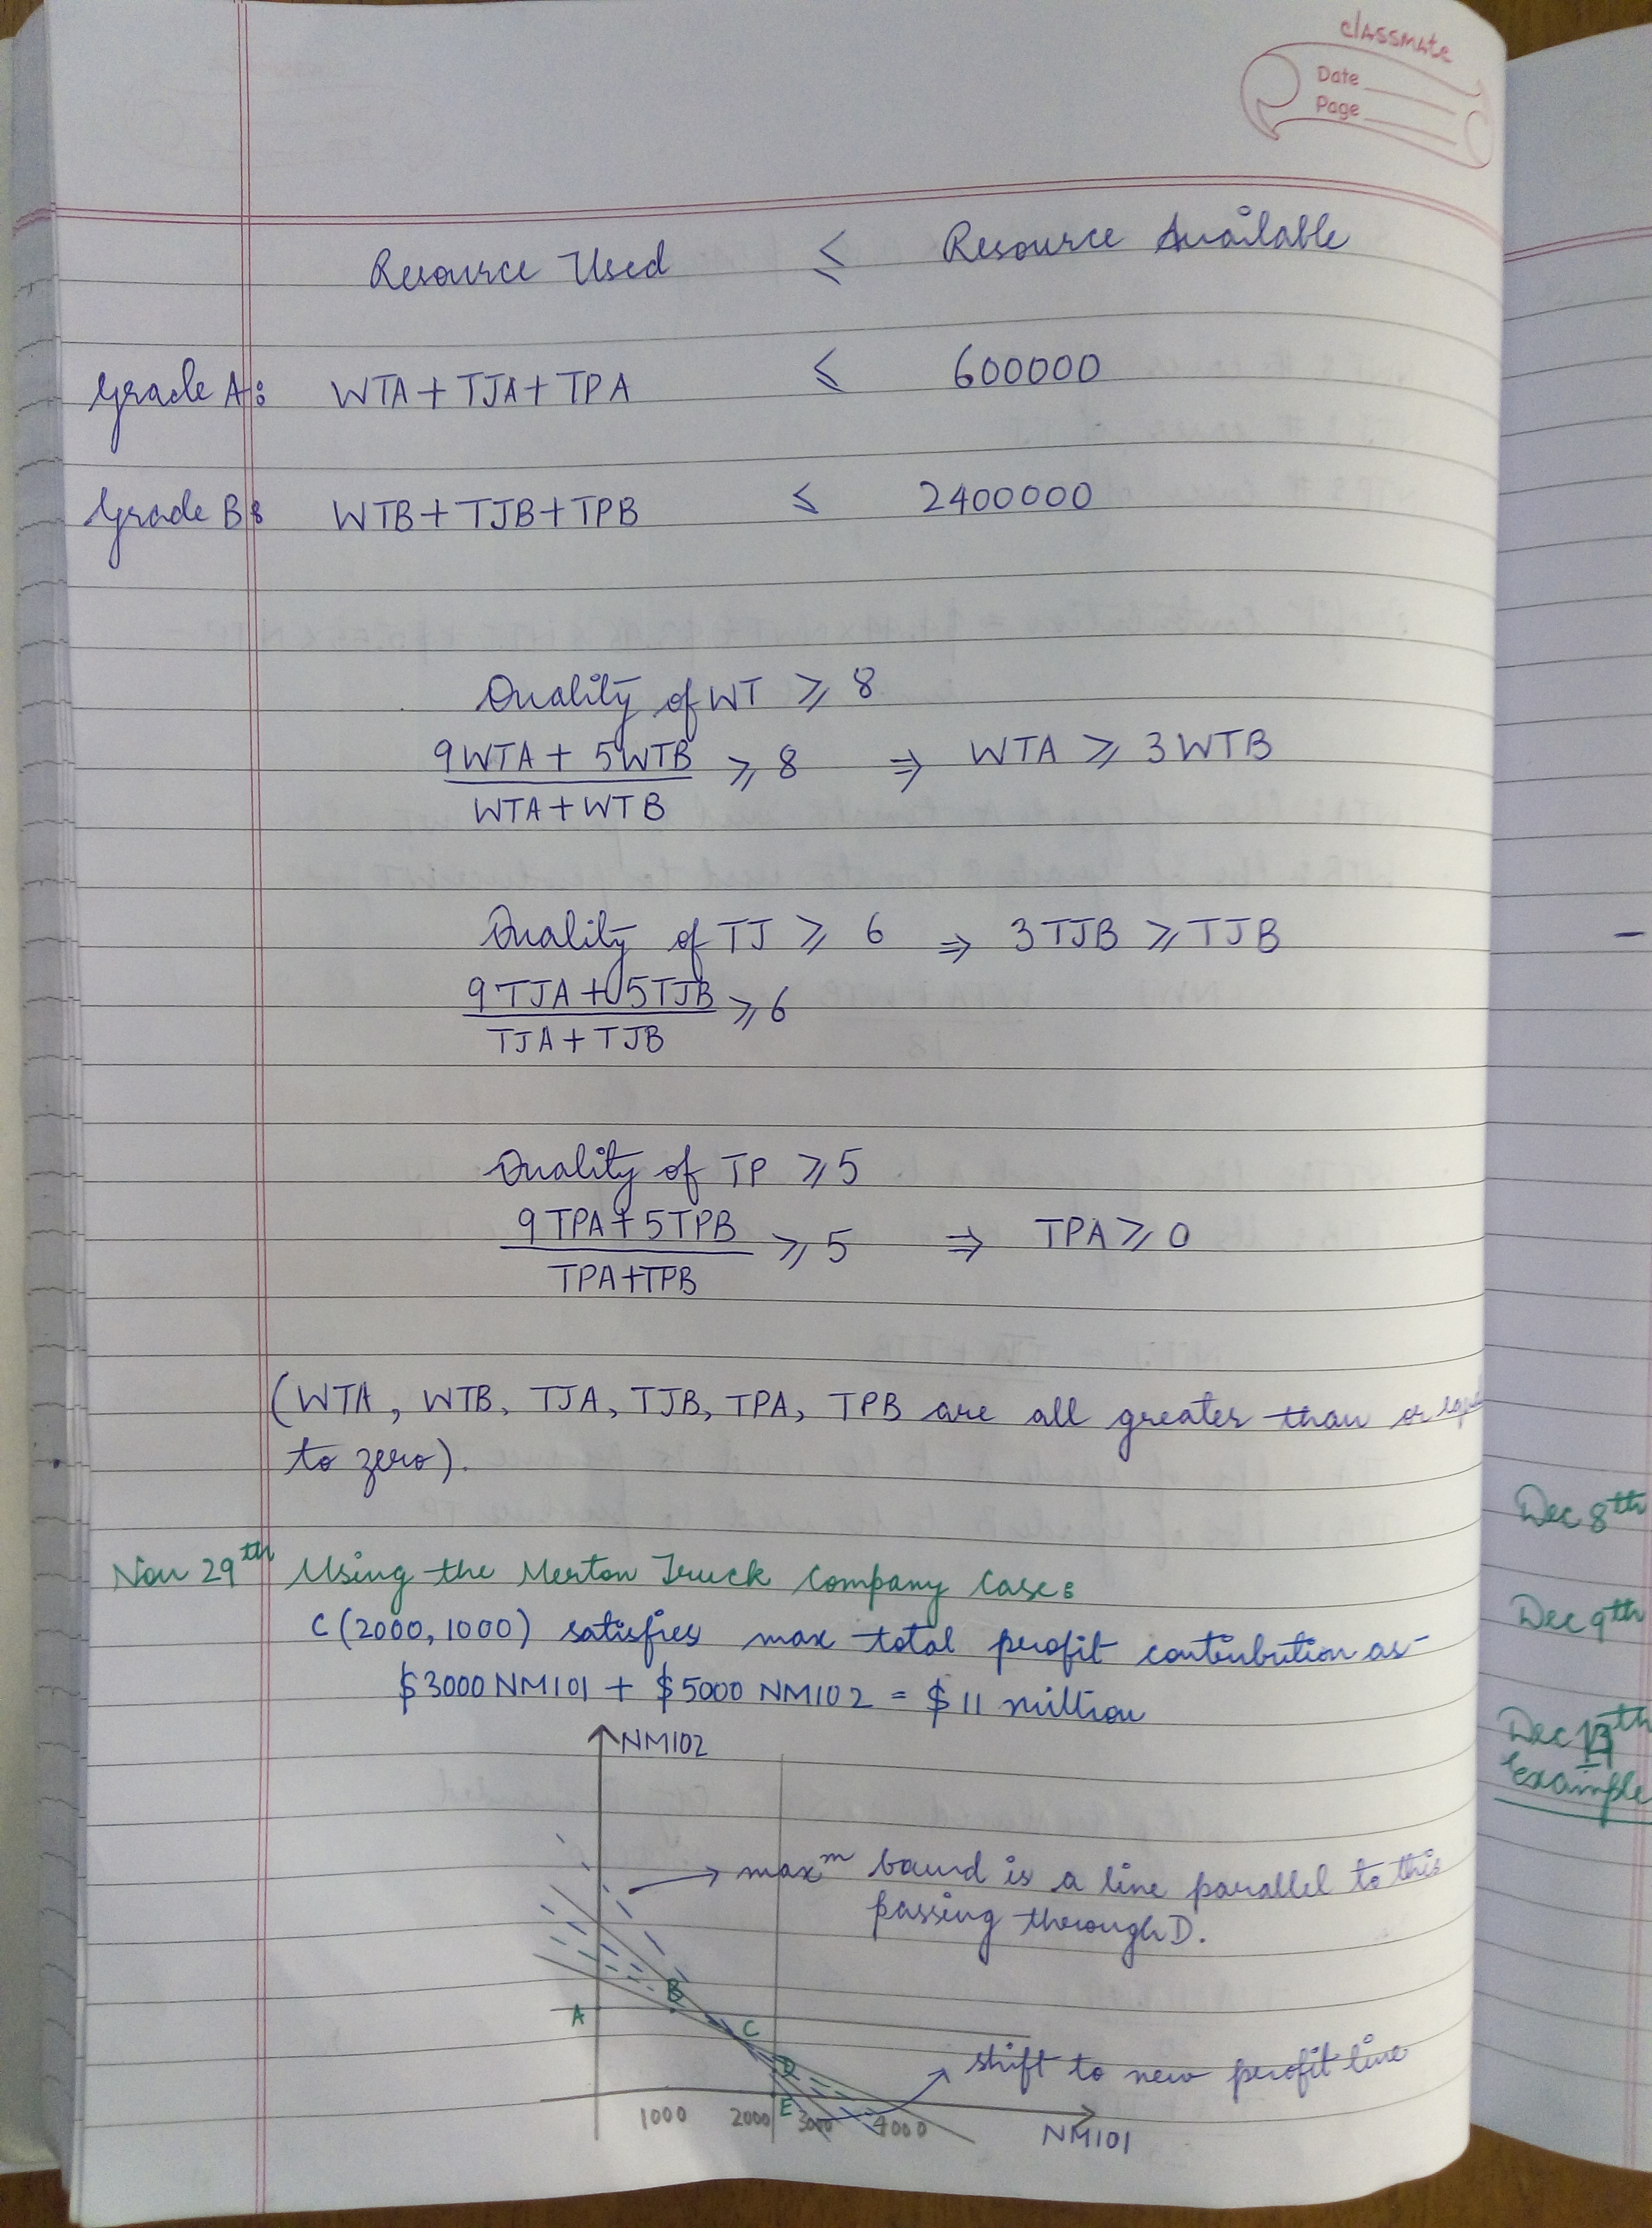 classmate
Date
Page
Resource Used ≤ Resource Available
Grade A: WTA + TJA + TPA ≤ 600000
Grade B: WTB + TJB + TPB ≤ 2400000
Quality of WT ≥ 8
9WTA + 5WTB / WTA + WTB ≥ 8 ⇒ WTA ≥ 3WTB
Quality of TJ ≥ 6 ⇒ 3TJB ≥ TJB
9TJA + 5TJB / TJA + TJB ≥ 6
Quality of TP ≥ 5
9TPA + 5TPB / TPA + TPB ≥ 5 ⇒ TPA ≥ 0
(WTA, WTB, TJA, TJB, TPA, TPB are all greater than or equal
to zero).
Nov 29th Using the Merton Truck Company Case:
C (2000, 1000) satisfies max total profit contribution as
$3000 NM101 + $5000 NM102 = $11 million
NM102
→ maxm bound is a line parallel to this
passing through D.
A
B
C
D
E
shift to new profit line
1000 2000 3000 4000
NM101
Dec 8th
Dec 9th
Example